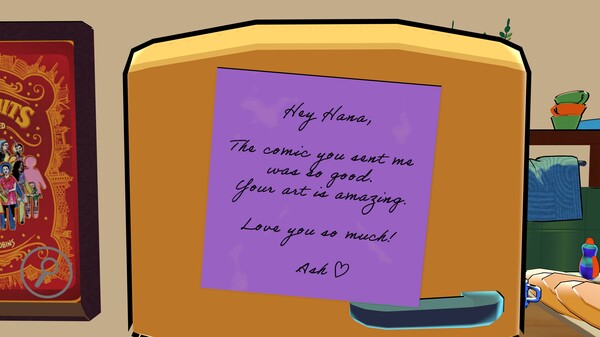 UITS
ED
OBINS
Hey Hana,
The comic you sent me
was so good.
Your art is amazing.
Love you so much!
Ash ♡